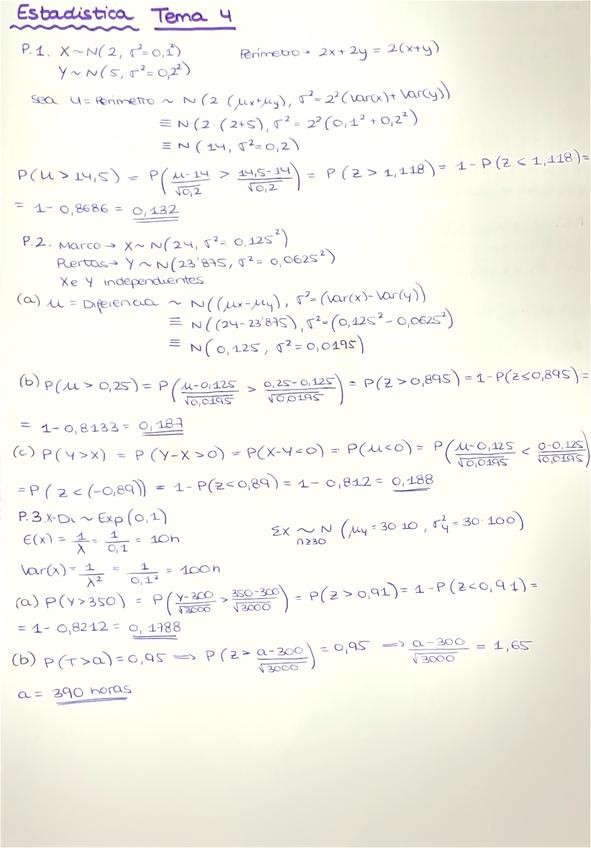 Estadística Tema 4
P.1. X~N(2, σ²=0,1²) Perímetro → 2x + 2y = 2(x+y)
Y~N(5, σ²=0,2²)
sea U = Perímetro ~ N(2·(μx+μy), σ²=2²(Var(x)+Var(y))
≡ N(2·(2+5), σ²=2²(0,1²+0,2²)
≡ N(14, σ²=0,2)
P(U>14,5) = P(μ-14/√0,2 > 14,5-14/√0,2) = P(Z>1,118) = 1-P(Z≤1,118) =
= 1-0,8686 = 0,132
P.2. Marco → X~N(24, σ²=0,125²)
Puertas → Y~N(23'875, σ²=0,0625²)
X e Y independientes
(a) μ = Diferencia ~ N((μx-μy), σ²=(Var(x)-Var(y))
≡ N((24-23'875), σ²=(0,125²-0,0625²)
≡ N(0,125, σ²=0,0195)
(b) P(μ>0,25) = P(μ-0,125/√0,0195 > 0,25-0,125/√0,0195) = P(Z>0,895) = 1-P(Z≤0,895) =
= 1-0,8133 = 0,187
(c) P(Y>X) = P(Y-X>0) = P(X-Y<0) = P(μ<0) = P(μ-0,125/√0,0195 < 0-0,125/√0,0195)
= P(Z<(-0,89)) = 1-P(Z<0,89) = 1-0,812 = 0,188
P.3. X=Di ~ Exp(0,1) Σx ~ N (μy=30·10, σ²y=30·100)
n≥30
E(x) = 1/λ = 1/0,1 = 10h
Var(x) = 1/λ² = 1/0,1² = 100h
(a) P(Y>350) = P(Y-300/√3000 > 350-300/√3000) = P(Z>0,91) = 1-P(Z<0,91) =
= 1-0,8212 = 0,1788
(b) P(T>a) = 0,95 ⟹ P(Z> a-300/√3000) = 0,95 ⟹ a-300/√3000 = 1,65
a = 390 horas